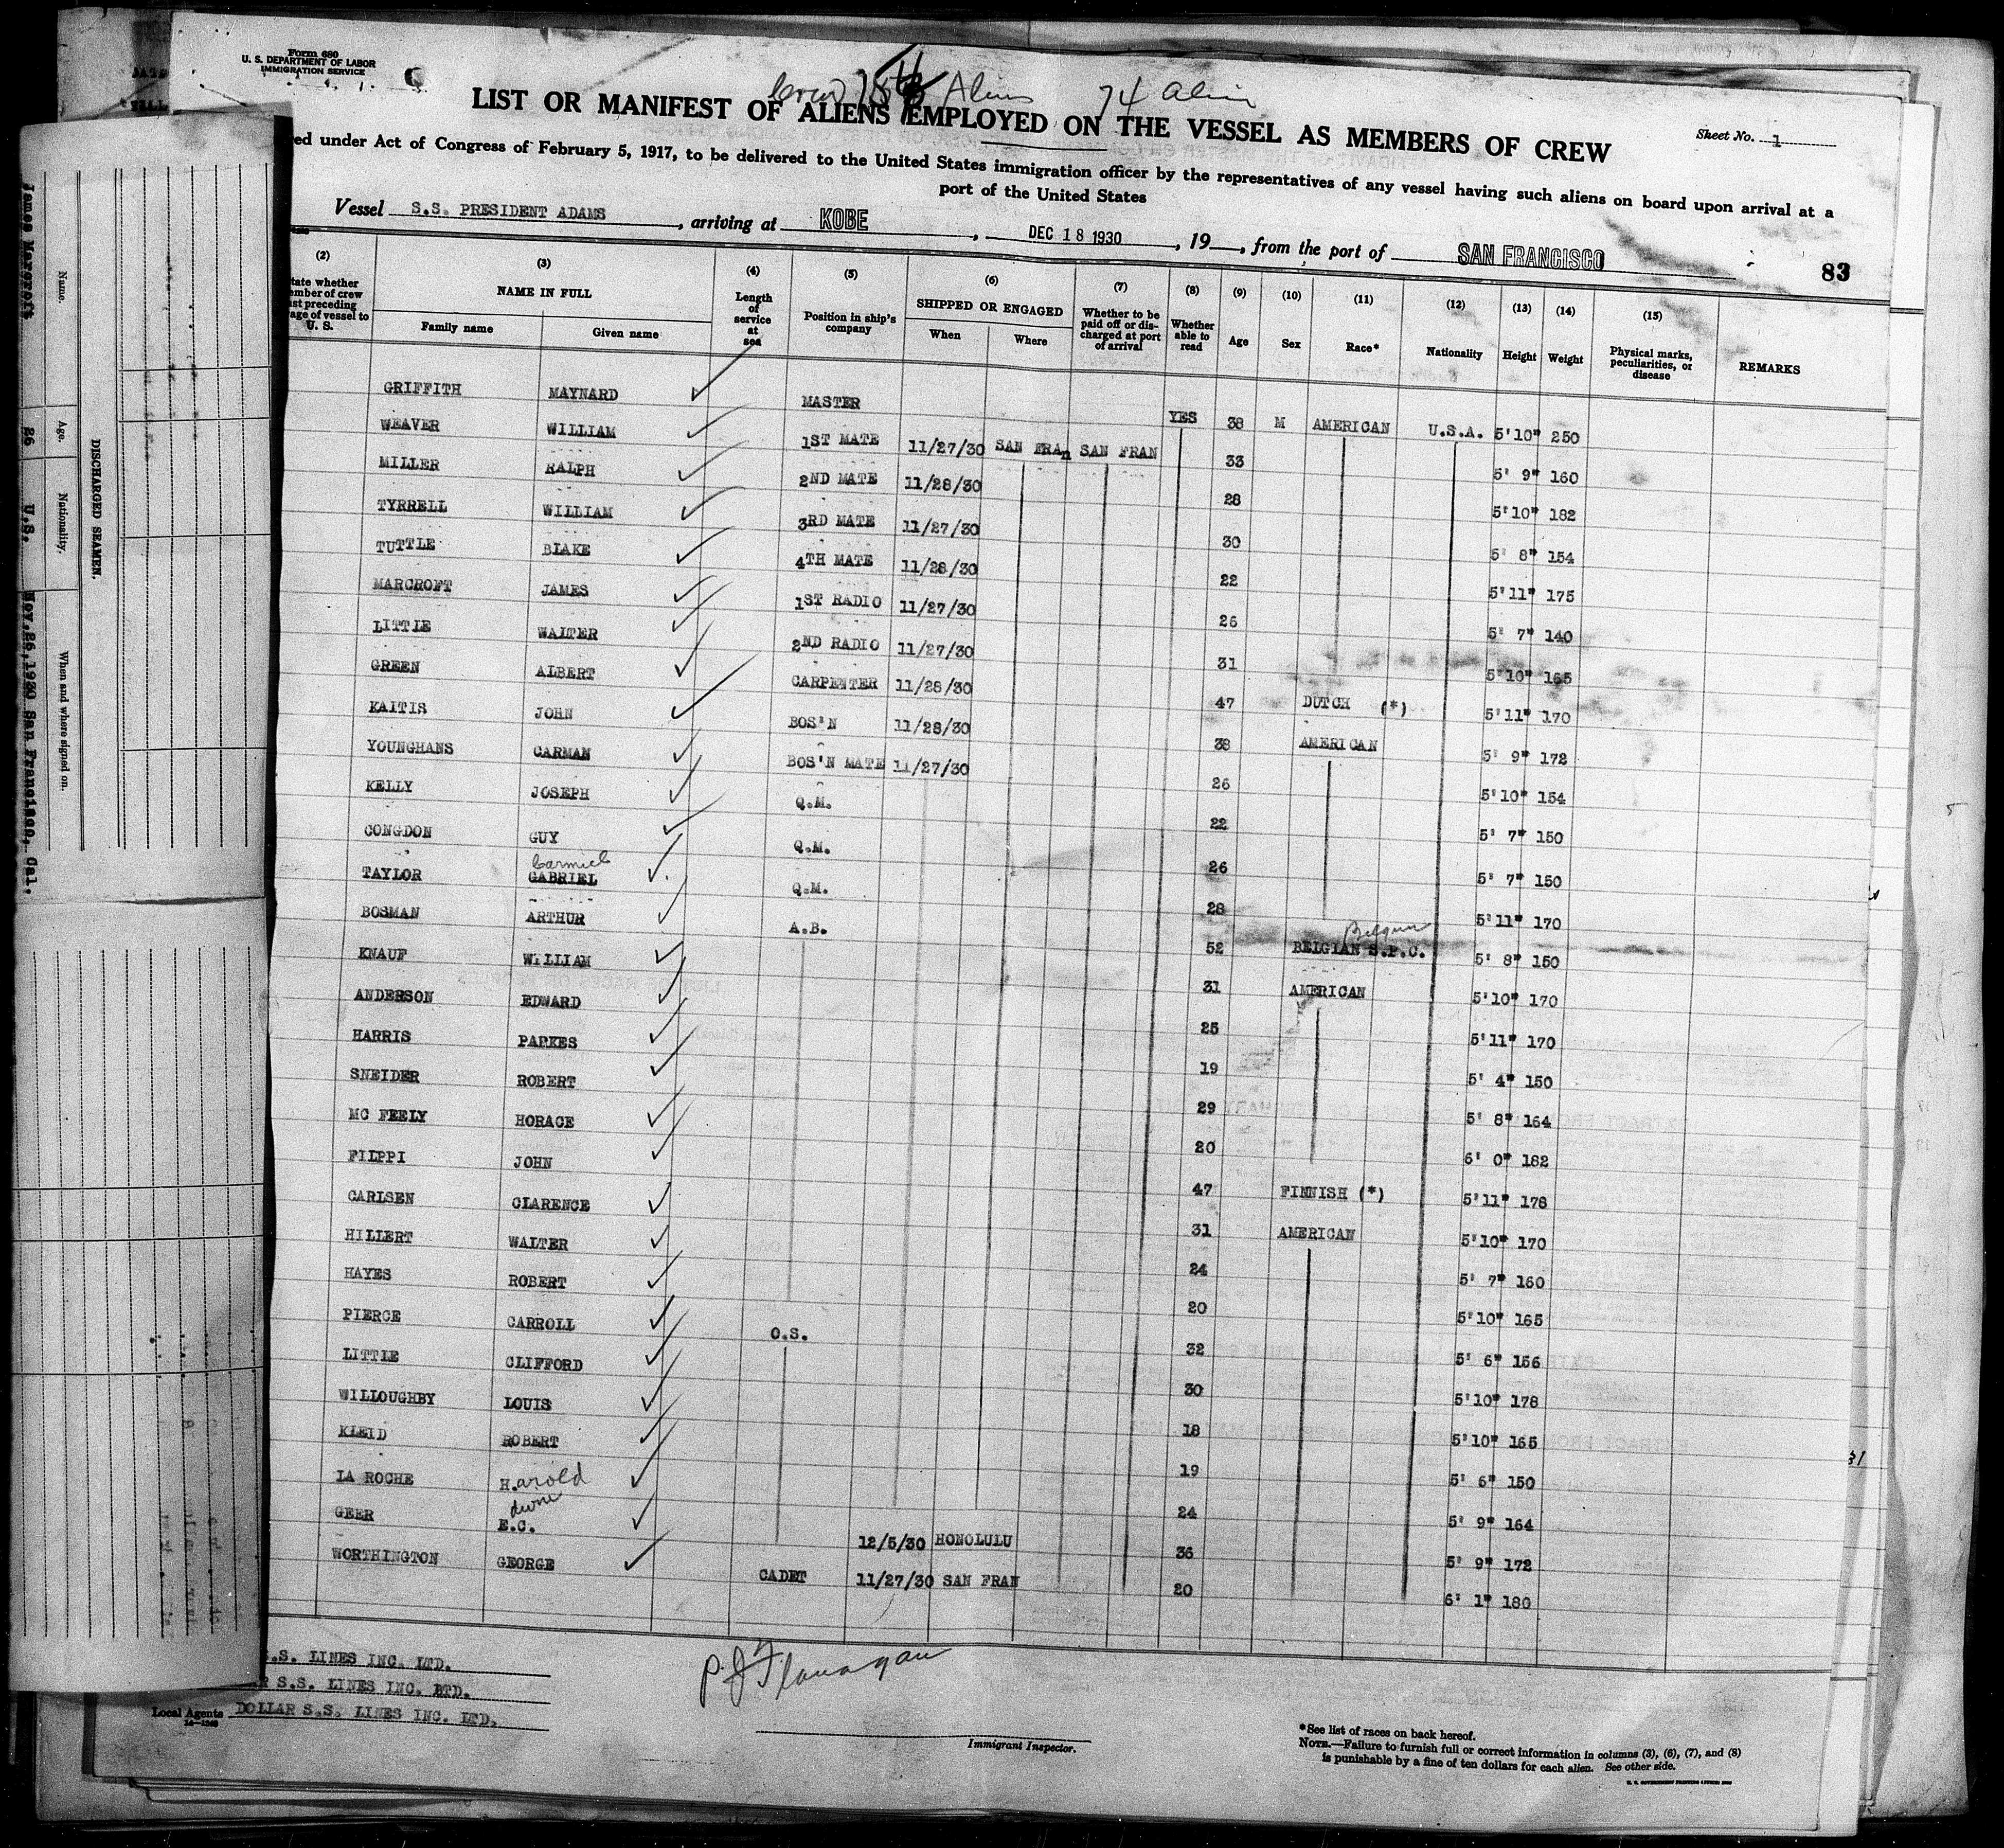 Form 680
U. S. DEPARTMENT OF LABOR
IMMIGRATION SERVICE
Crew Aliens 74 alien
LIST OR MANIFEST OF ALIENS EMPLOYED ON THE VESSEL AS MEMBERS OF CREW
Sheet No. 1
ed under Act of Congress of February 5, 1917, to be delivered to the United States immigration officer by the representatives of any vessel having such aliens on board upon arrival at a
port of the United States
Vessel S.S. PRESIDENT ADAMS, arriving at KOBE, DEC 18 1930, 19, from the port of SAN FRANCISCO
83
(2) (3) (4) (5) (6) (7) (8) (9) (10) (11) (12) (13) (14) (15)
tate whether
ember of crew
ast preceding
age of vessel to
U. S.
NAME IN FULL
Family name Given name
Length
of
service
at
sea
Position in ship's
company
SHIPPED OR ENGAGED
When Where
Whether to be
paid off or dis-
charged at port
of arrival
Whether
able to
read
Age Sex Race* Nationality Height Weight
Physical marks,
peculiarities, or
disease
REMARKS
GRIFFITH MAYNARD MASTER YES 38 M AMERICAN U.S.A. 5'10" 250
WEAVER WILLIAM 1ST MATE 11/27/30 SAN FRAn SAN FRAN 33 5' 9" 160
MILLER RALPH 2ND MATE 11/28/30 28 5'10" 182
TYRRELL WILLIAM 3RD MATE 11/27/30 30 5' 8" 154
TUTTLE BLAKE 4TH MATE 11/28/30 22 5'11" 175
MARCROFT JAMES 1ST RADIO 11/27/30 26 5' 7" 140
LITTLE WALTER 2ND RADIO 11/27/30 31 5'10" 165
GREEN ALBERT CARPENTER 11/28/30 47 DUTCH (*) 5'11" 170
KAITIS JOHN BOS'N 11/28/30 38 AMERICAN 5' 9" 172
YOUNGHANS CARMAN BOS'N MATE 11/27/30 26 5'10" 154
KELLY JOSEPH Q.M. 22 5' 7" 150
CONGDON GUY Q.M. 26 5' 7" 150
Carmiel
TAYLOR GABRIEL Q.M. 28 5'11" 170
Belgium
BOSMAN ARTHUR A.B. 52 BELGIAN S.P.C. 5' 8" 150
KNAUF WILLIAM 31 AMERICAN 5'10" 170
ANDERSON EDWARD 25 5'11" 170
HARRIS PARKES 19 5' 4" 150
SNEIDER ROBERT 29 5' 8" 164
MC FEELY HORACE 20 6' 0" 182
FILPPI JOHN 47 FINNISH (*) 5'11" 178
CARLSEN CLARENCE 31 AMERICAN 5'10" 170
HILLERT WALTER 24 5' 7" 160
HAYES ROBERT 20 5'10" 165
PIERCE CARROLL O.S. 32 5' 6" 156
LITTLE CLIFFORD 30 5'10" 178
WILLOUGHBY LOUIS 18 5'10" 165
KLEID ROBERT 19 5' 6" 150
LA ROCHE Harold 24 5' 9" 164
GEER E.C. 12/5/30 HONOLULU 36 5' 9" 172
WORTHINGTON GEORGE CADET 11/27/30 SAN FRAN 20 6' 1" 180
S.S. LINES INC. LTD.
R S.S. LINES INC. LTD.
Local Agents DOLLAR S.S. LINES INC. LTD.
P. J. Flanagan
Immigrant Inspector.
*See list of races on back hereof.
NOTE.—Failure to furnish full or correct information in columns (3), (6), (7), and (8)
is punishable by a fine of ten dollars for each alien. See other side.
DISCHARGED SEAMEN.
Name. Age. Nationality. When and where signed on.
James Marcroft 26 U.S. Nov.26,1930 San Francisco, Cal.